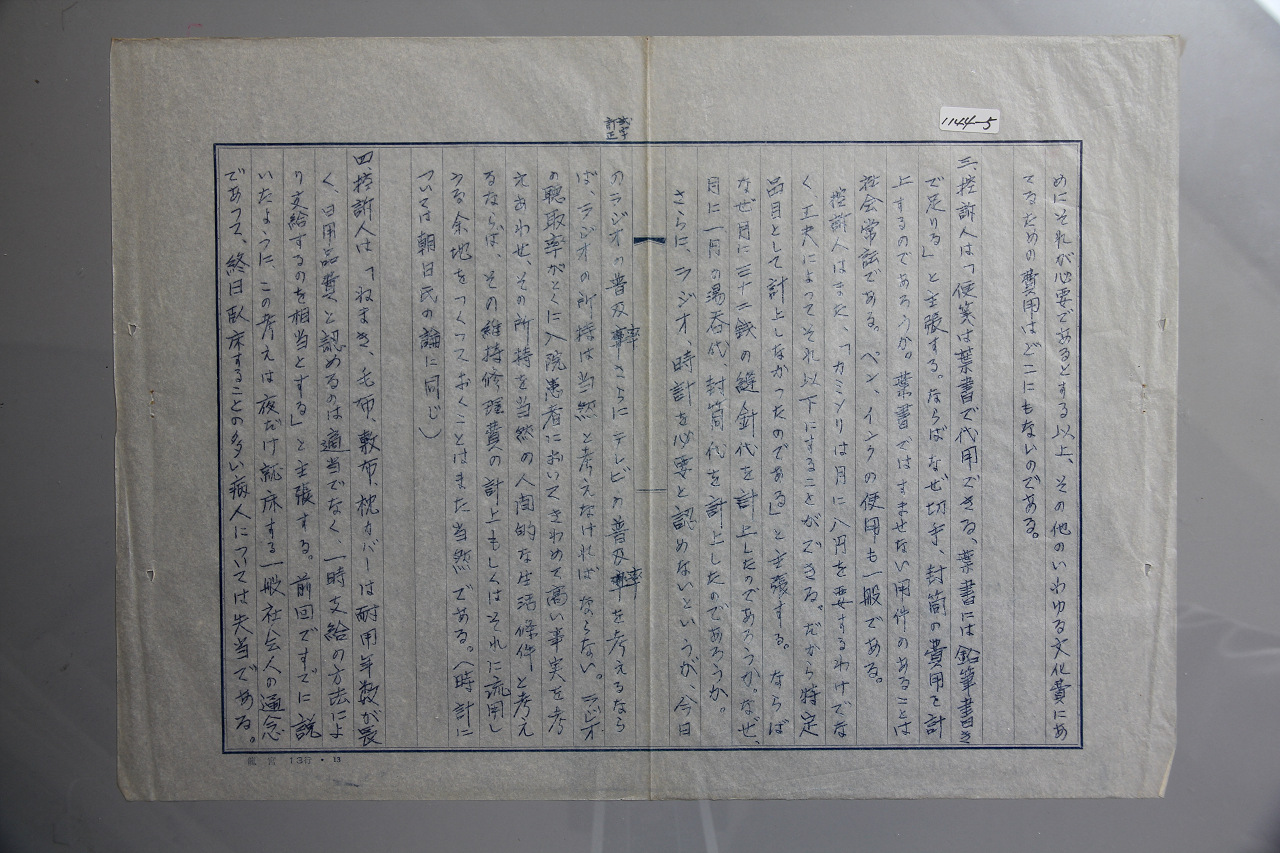 1144-5
めにそれが必要であるとする以上、その他のいわゆる文化費にあ
てるための費用はどこにもないのである。
三、控訴人は「便箋は葉書で代用できる、葉書には鉛筆書き
で足りる」と主張する。ならばなぜ切手、封筒の費用を計
上するのであろうか。葉書ではすませない用件のあることは
社会常識である。ペン、インクの使用も一般である。
控訴人はまた、「カミソリは月に八円を要するわけでな
く、工夫によってそれ以下にすることができる。だから特定
品目として計上しなかったのである」と主張する。ならば
なぜ月に三十二銭の縫針代を計上したのであろうか。なぜ、
月に一円の湯呑代、封筒代を計上したのであろうか。
さらに、ラジオ、時計を必要と認めないというが、今日
弐字
訂正
のラジオの普及率さらにテレビの普及率を考えるなら
ば、ラジオの所持は当然と考えなければならない。ラジオ
の聴取率がとくに入院患者においてきわめて高い事実を考
えあわせ、その所持を当然の人間的な生活條件と考え
るならば、その維持修理費の計上もしくはそれに流用し
うる余地をつくっておくことはまた当然である。(時計に
ついては朝日氏の論に同じ)
四 控訴人は「ねまき、毛布、敷布、枕カバーは耐用年数が長
く、日用品費と認めるのは適当でなく、一時支給の方法によ
り支給するのを相当とする」と主張する。前回ですでに説
いたように、この考えは夜だけ就床する一般社会人の通念
であって、終日臥床することの多い病人については失当である。
龍宮 13行・13